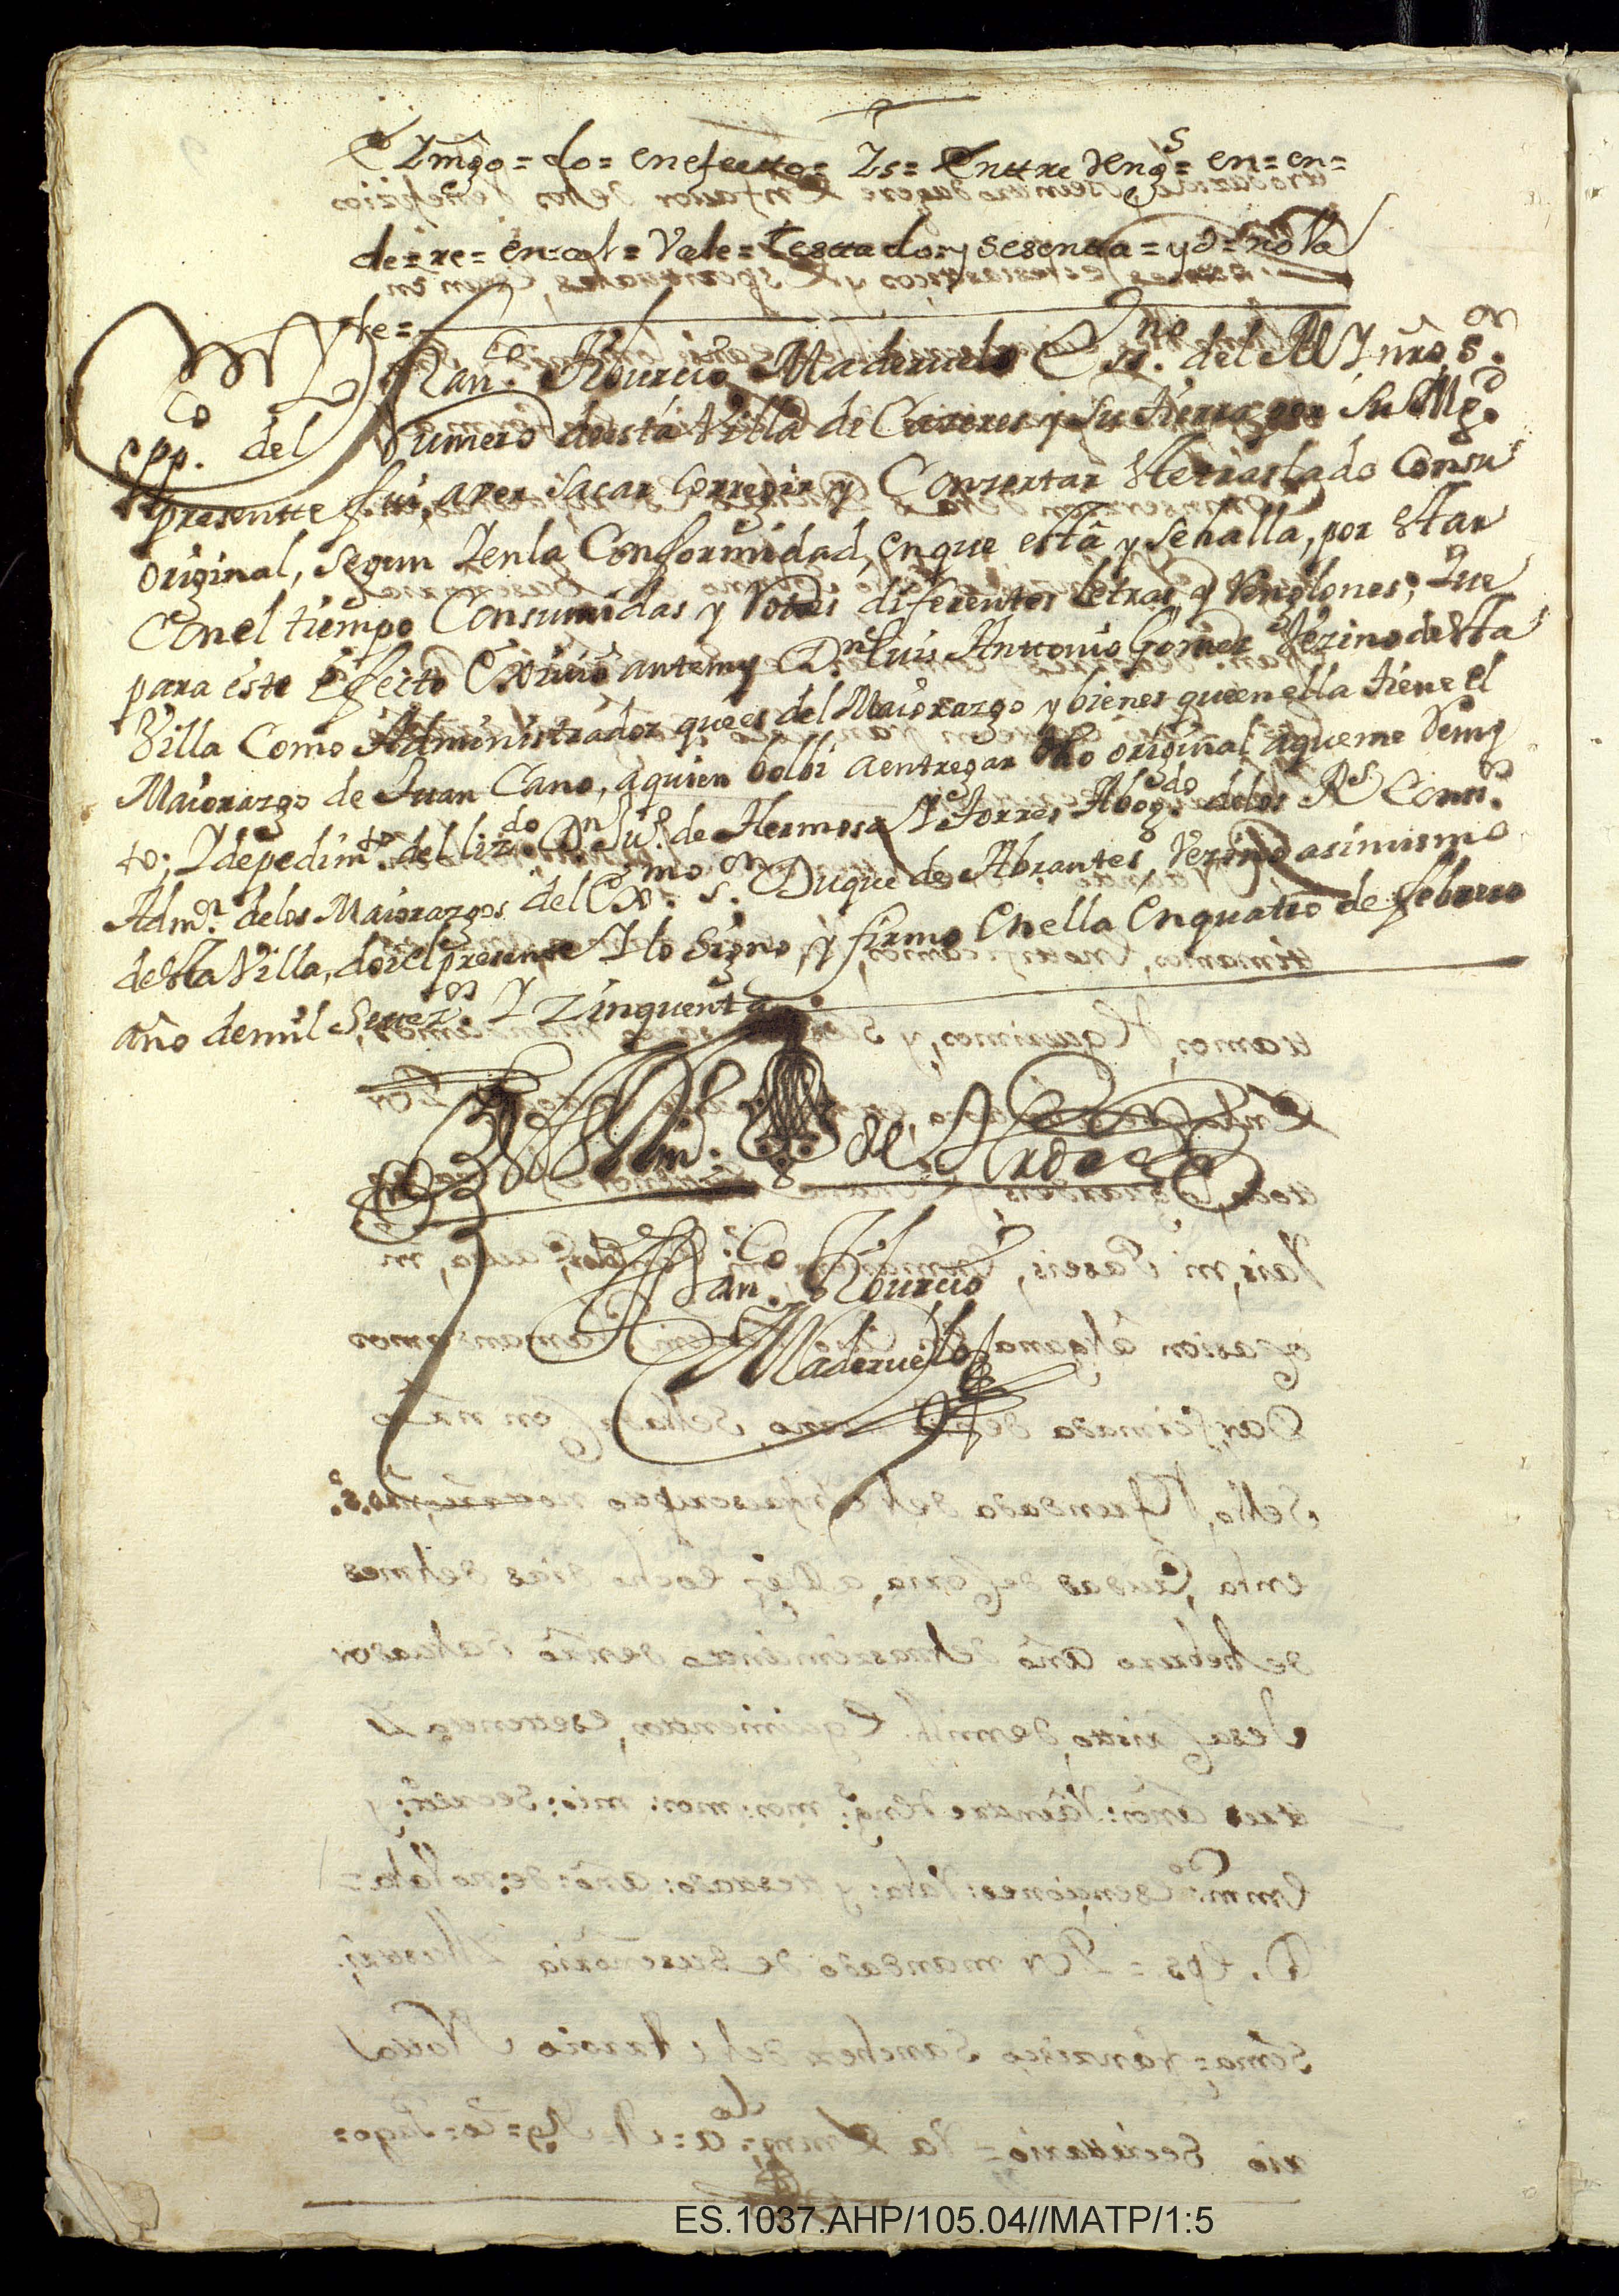 Emgo = do = en efectto = Is = Enttre Reng.s = en = en =
de = re = en = al = Vale = testtado = y sesentta = y d = no Va
le =
Fran.co Tiburcio Maderuelo Ess.no del Rey nro s.or
Pp.co del Numero de esta Villa de Cazeres y su tierra por Su Mg.d
presentte fui, a ver sacar Correxir y Conzertar este traslado Con su
original, segun y en la Conformidad, en que està y se halla, por estar
Con el tiempo Consumidas y rotas diferentes letras y Renglones; que
para este Efecto Exivio ante my D.n Luis Anttonio Gomez Vezino de esta
Villa Como Administrador que es del Maiorazgo y bienes que en ella tiene el
Maiorazgo de Juan Cano, a quien bolbi a entregar dho original a que me Remi
to; Y de pedim.to del lizdo D.n Ju.o de Hermosa y Torres Abog.do de los R.s Cons.os
Adm.or de los Maiorazgos del Ex.mo s.or Duque de Abrantes Vezino asimismo
de esta Villa, doi el presente y lo Signo, y firmo En ella En quatro de febrero
año de mil Settez.os y Zinquenta
En testim.o de Verdad
Fran.co Tiburcio
Maderuelo
ES.1037.AHP/105.04//MATP/1:5